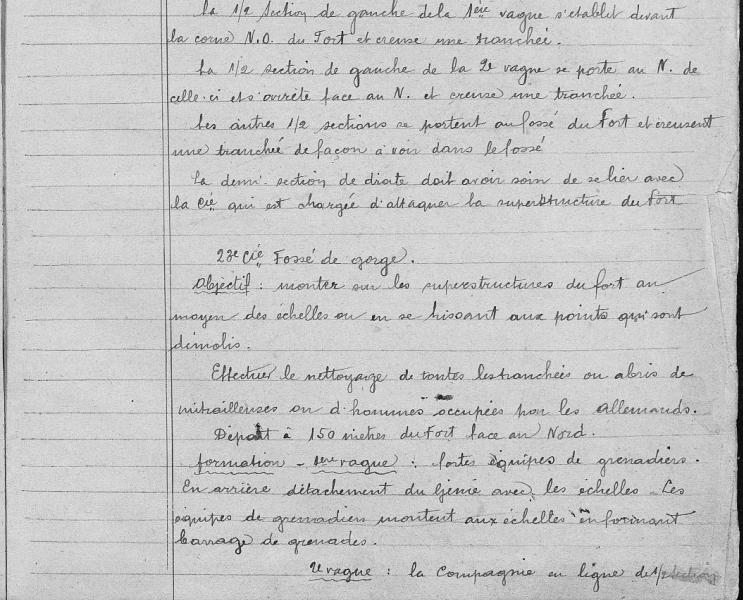 La 1/2 Section de gauche de la 1ère vague s'établit devant
la corne N.O. du Fort et creuse une tranchée.
La 1/2 section de gauche de la 2e vague se porte au N. de
celle-ci et s'arrête face au N. et creuse une tranchée.
Les autres 1/2 sections se portent au fossé du Fort et creusent
une tranchée de façon à voir dans le fossé
La demi-section de droite doit avoir soin de se lier avec
la Cie qui est chargée d'attaquer la superstructure du Fort
23e Cie Fossé de gorge.
Objectif : monter sur les superstructures du fort au
moyen des échelles ou en se hissant aux points qui sont
démolis.
Effectuer le nettoyage de toutes les tranchées ou abris de
mitrailleuses ou d'hommes occupées par les Allemands.
Départ à 150 mètres du Fort face au Nord.
formation - 1ère vague : fortes équipes de grenadiers.
En arrière détachement du Génie avec les échelles - Les
équipes de grenadiers montent aux échelles en formant
barrage de grenades.
2e vague : la Compagnie en ligne de 1/2 sections